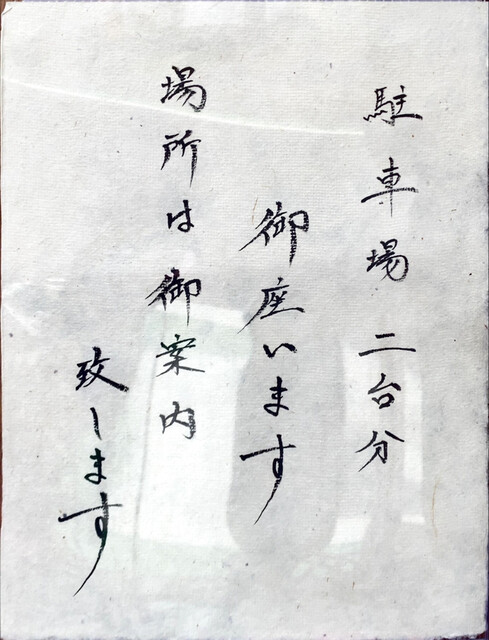 駐車場二台分
御座います
場所は御案内
致します